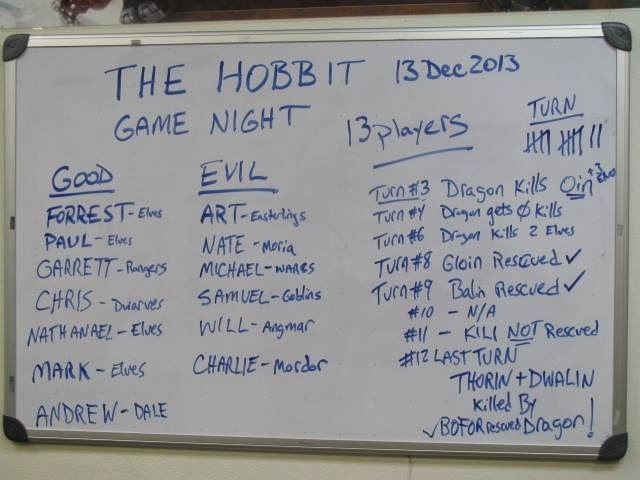 THE HOBBIT 13 Dec 2013
GAME NIGHT
13 players
TURN
GOOD
FORREST - Elves
PAUL - Elves
GARRETT - Rangers
CHRIS - Dwarves
NATHANAEL - Elves
MARK - Elves
ANDREW - DALE
EVIL
ART - Easterlings
NATE - Moria
MICHAEL - WARGS
SAMUEL - Goblins
WILL - Angmar
CHARLIE - Mordor
Turn #3 Dragon Kills Oin +3
Turn #4 Dragon gets 0 Kills
Turn #6 Dragon Kills 2 Elves
Turn #8 Gloin Rescued ✓
Turn #9 Balin Rescued ✓
#10 - N/A
#11 - KILI NOT Rescued
#12 LAST TURN
THORIN + DWALIN
Killed By
✓BOFOR rescued Dragon!